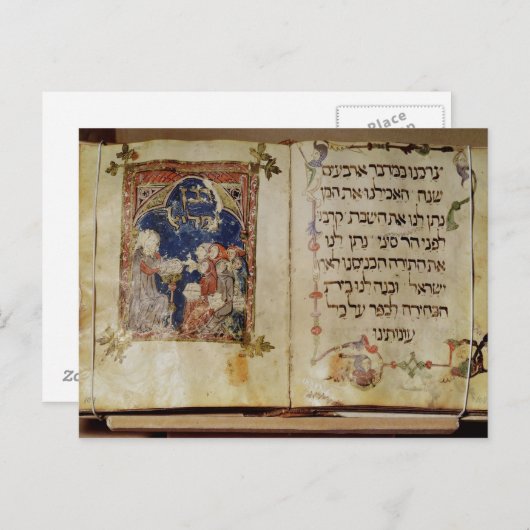 צרכנו במדבר ארבעים
שנה האכילנו את המן
נתן לנו את השבת קרבנו
לפני הר סיני נתן לנו
את התורה הכניסנו לארץ
ישראל ובנה לנו בית
הבחירה לכפר על כל
עונותינו
Place